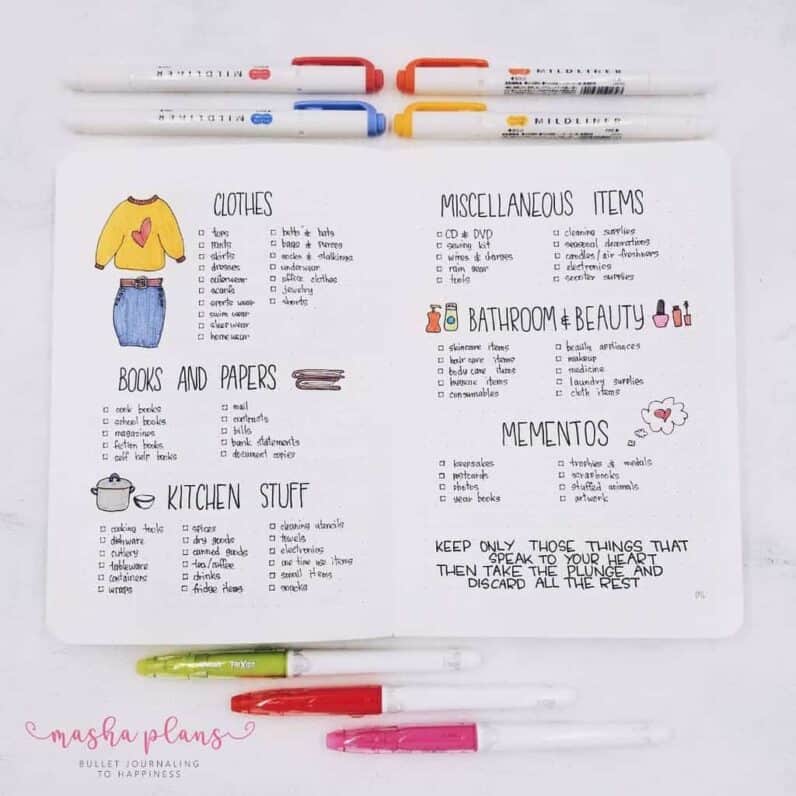 MILDLINER
MILDLINER
MILDLINER
MILDLINER
CLOTHES
tops
pants
skirts
dresses
outerwear
scarfs
sports wear
swim wear
sleep wear
home wear
belts & hats
bags & purces
socks & stalkings
underwear
office clothes
jewelry
shorts
BOOKS AND PAPERS
cook books
school books
magazines
fiction books
self help books
mail
contracts
bills
bank statements
document copies
KITCHEN STUFF
cooking tools
dishware
cutlery
tableware
containers
wraps
spices
dry goods
canned goods
tea/coffee
drinks
fridge items
cleaning utencils
towels
electronics
one time use items
small items
snacks
MISCELLANEOUS ITEMS
CD & DVD
sewing kit
wires & charges
rain gear
tools
cleaning supplies
seasonal decorations
candles/air freshners
electronics
scooter supplies
BATHROOM & BEAUTY
skincare items
hair care items
body care items
hygiene items
consumables
beauty appliances
makeup
medicine
laundry supplies
cloth items
MEMENTOS
keepsakes
postcards
photos
year books
trophies & medals
scrapbooks
stuffed animals
artwork
KEEP ONLY THOSE THINGS THAT
SPEAK TO YOUR HEART
THEN TAKE THE PLUNGE AND
DISCARD ALL THE REST
FRIXION
masha plans
BULLET JOURNALING
TO HAPPINESS